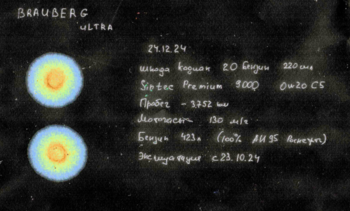 BRAUBERG
ULTRA
24.12.24
Шкода Кодиак 2.0 Бензин 220 лс
Sintec Premium 9000 0w20 C5
Пробег - 3752 км
Моточасы 130 м/ч
Бензин 423 л (100% АИ 95)
Эксплуатация с 23.10.24